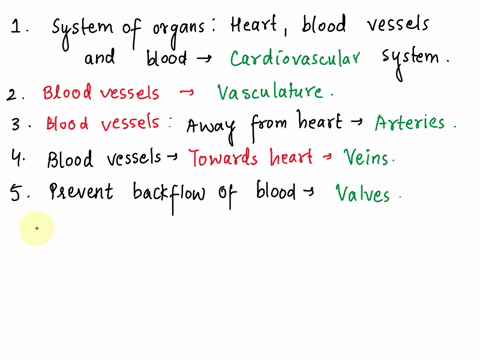 1. System of organs: Heart, blood vessels
and blood → Cardiovascular system.
2. Blood vessels → Vasculature.
3. Blood vessels: Away from heart → Arteries.
4. Blood vessels → Towards heart → Veins.
5. Prevent backflow of blood → Valves.